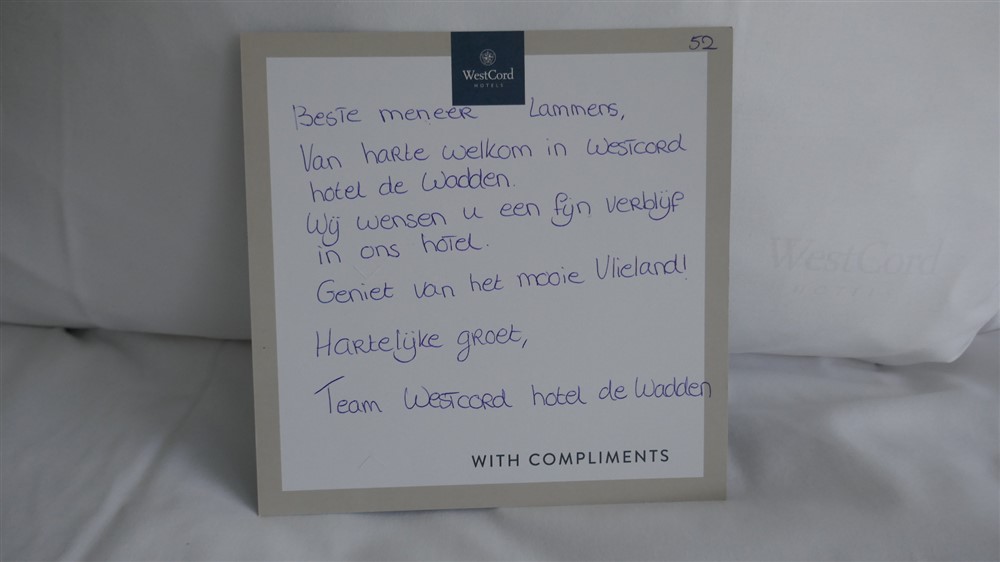 52
WestCord
HOTELS
Beste meneer Lammers,
Van harte welkom in Westcord
hotel de Wadden.
Wij wensen u een fijn verblijf
in ons hotel.
Geniet van het mooie Vlieland!
Hartelijke groet,
Team Westcord hotel de Wadden
WITH COMPLIMENTS
WestCord
HOTELS